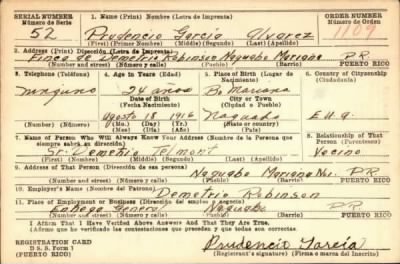 SERIAL NUMBER
Número de Serie
1. Name (Print) Nombre (Letra de Imprenta)
ORDER NUMBER
Número de Orden
52 Prudencio Garcia Alvarez 1199
(First) (Primer Nombre) (Middle) (Segundo) (Last) (Apellido)
2. Address (Print) Dirección (Letra de Imprenta)
Finca de Demetrio Robinson Naguabo Mariana P.R
(Number and street) (Número y calle) PUERTO RICO
3. Telephone (Teléfono) 4. Age in Years (Edad) 5. Place of Birth (Lugar de Nacimiento) 6. Country of Citizenship (Ciudadanía)
ninguno 24 años Bo Mariana
Date of Birth (Fecha Nacimiento) City or Town (Ciudad o Pueblo)
Agosto 18 1916 Naguabo E.U.A.
(Mo.) (Day) (Yr.) (State or country)
(Mes) (Día) (Año) (Estado o país)
7. Name of Person Who Will Always Know Your Address (Nombre de la Persona que siempre sabrá su dirección) 8. Relationship of That Person (Parentesco)
Sr. Demetrio Vecino
(First) (Nombre) (Middle) (Segundo) (Last) (Apellido)
9. Address of That Person (Dirección de esa persona)
Naguabo Mariana P.R
(Number and street) (Número y calle) PUERTO RICO
10. Employer's Name (Nombre del Patrono)
Demetrio Robinson
11. Place of Employment or Business (Dirección del empleo o negocio)
General Naguabo P.R
(Number and street) (Número y calle) PUERTO RICO
I Affirm That I Have Verified Above Answers and That They Are True.
(Afirmo que he verificado las contestaciones que preceden y que son ciertas.)
REGISTRATION CARD
D. S. S. Form 1 Prudencio Garcia
(Registrant's signature) (Firma o marca del Inscrito)